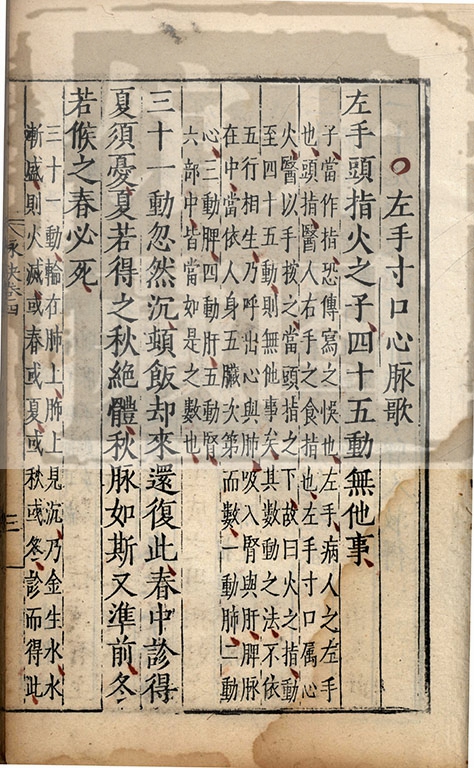 ○左手寸口心脈歌
左手頭指火之子四十五動無他事
子當作指恐傳寫之悮也左手病人之左手
也頭指醫人右手之食指也左手寸口属心
火醫以手按之當頭指之下故曰火之指動
至四十五動則無他事矣其數動之法不依
五行相生乃呼出心與肺吸入腎與肝脾脈
在中當依人身五臟次第而數一動肺二動
心三動脾四動肝五動腎
六部中皆當如是之數也
三十一動忽然沉頓飯却來還復此春中診得
夏須憂夏若得之秋絶體秋脈如斯又準前冬
若候之春必死
三十一動輪在肺上肺上見沉乃金生水水
漸盛則火滅或春或夏或秋或冬診而得此
卷四
三